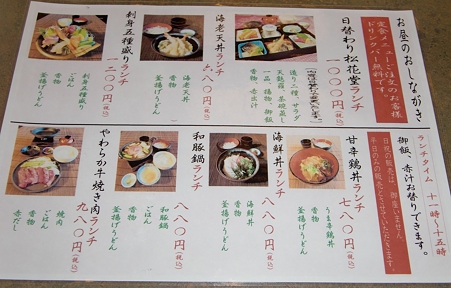 お昼のおしながき
定食メニューご注文のお客様
ドリンクバー無料です。
日替わり松花堂ランチ
一〇〇〇円(税込)
造り二種、サラダ
天ぷら、茶碗蒸し
一品、麺物、御飯
香物、赤出汁
海老天丼ランチ
六八〇円(税込)
海老天丼
香物
釜揚げうどん
刺身五種盛りランチ
一二〇〇円(税込)
刺身五種盛り
香物
ごはん
釜揚げうどん
ランチタイム 十一時〜十五時
御飯、赤汁お替りできます。
日祝の販売は、御座いません
平日のみの販売とさせていただきます。
甘辛鶏丼ランチ
七八〇円(税込)
うま辛鶏丼
香物
釜揚げうどん
海鮮丼ランチ
八八〇円(税込)
海鮮丼
香物
釜揚げうどん
和豚鍋ランチ
八八〇円(税込)
和豚鍋
ごはん
香物
釜揚げうどん
やわらか牛焼き肉ランチ
九八〇円(税込)
焼肉
ごはん
香物
赤だし